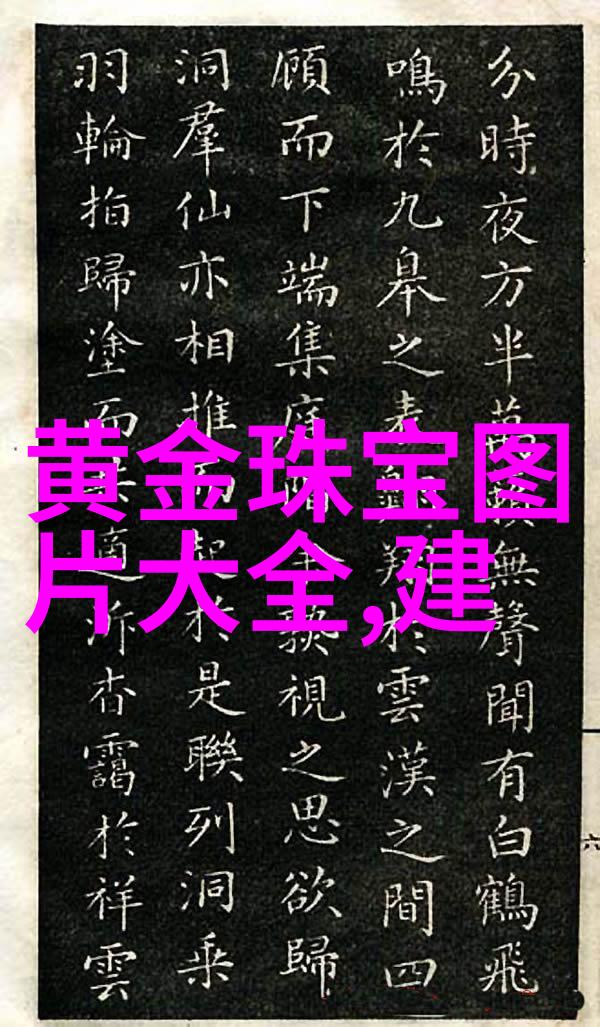 黄金珠宝图
片大全,建
分時夜方半萬籟無聲聞有白鶴飛
鳴於九皋之表翔於雲漢之間四
顧而下端集視之思欲歸
洞羣仙亦相推而起於是聯列洞乘
羽輪指歸塗而適泝杳靄於祥雲
六